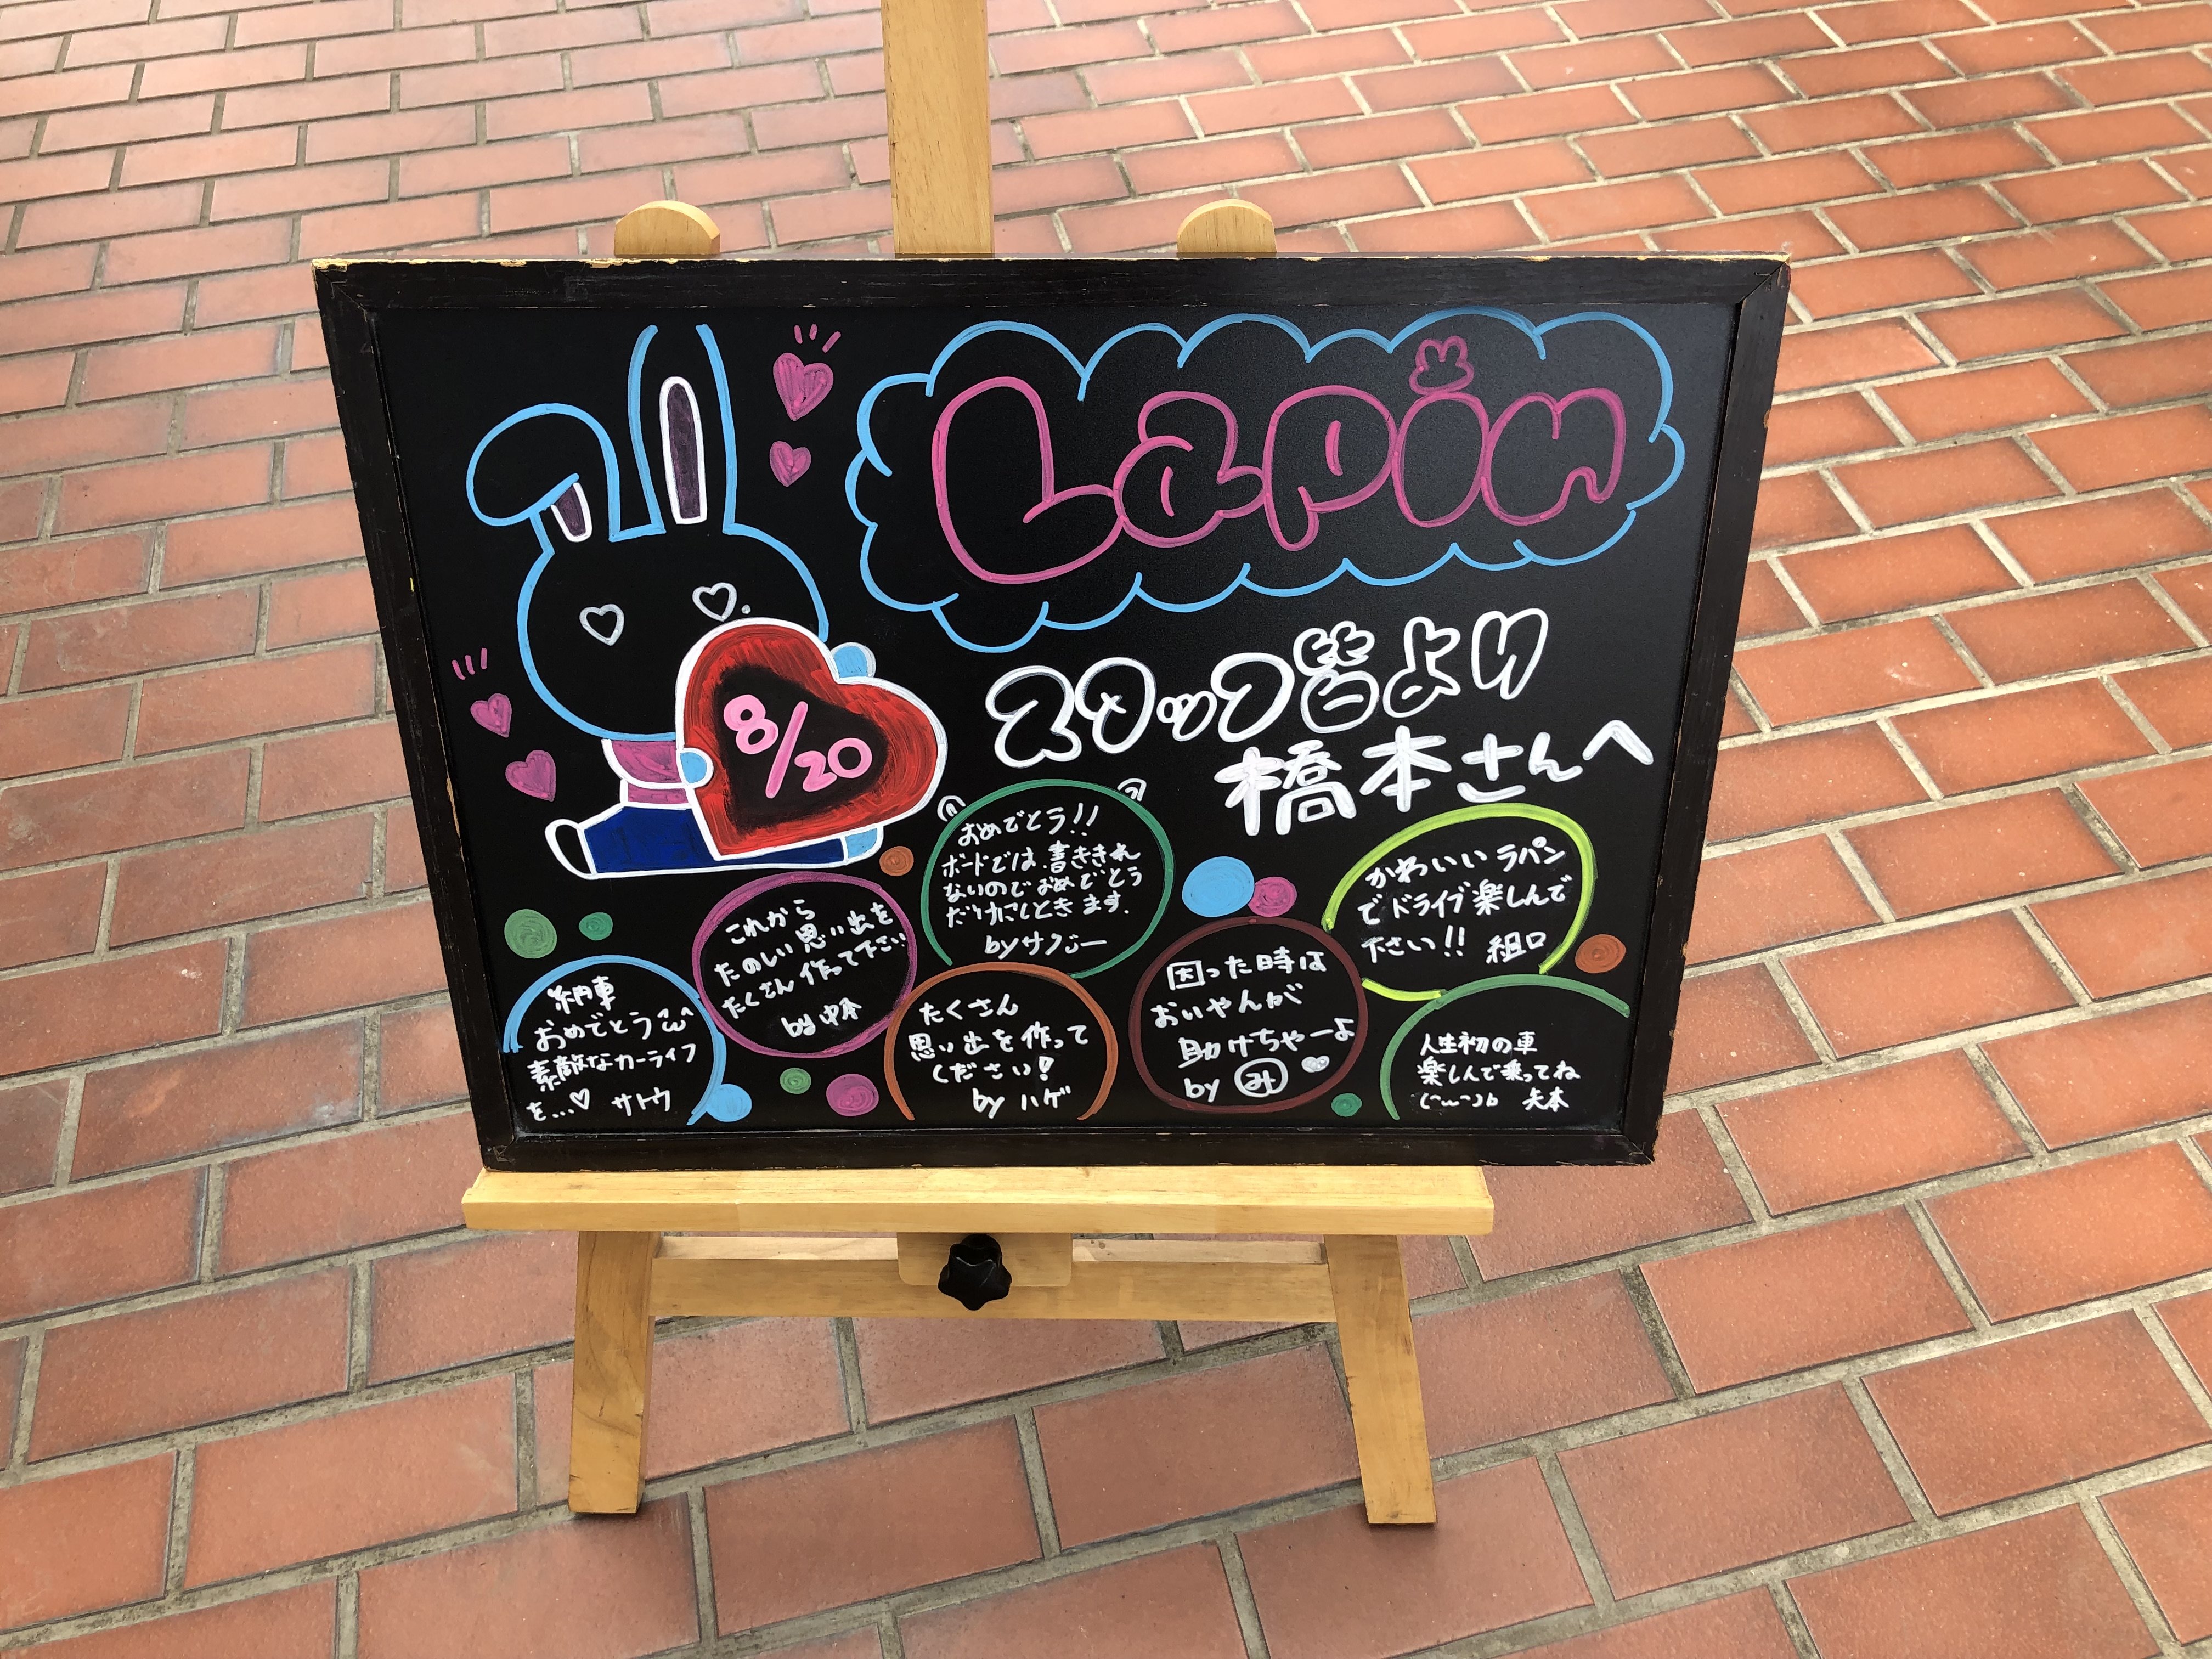 Lapin
8/20
スタッフ皆より
橋本さんへ
おめでとう!!
ボードでは書ききれ
ないのでおめでとう
だけにしときます.
by サクぶー
かわいいラパン
でドライブ楽しんで
下さい!! 組口
これから
たのしい思い出を
たくさん作って下さい
by 中本
困った時は
おいやんが
助けちゃーよ
by み
納車
おめでとう
素敵なカーライフ
を...♡ サトウ
たくさん
思い出を作って
ください!
by ハゲ
人生初の車
楽しんで乗ってね
矢本